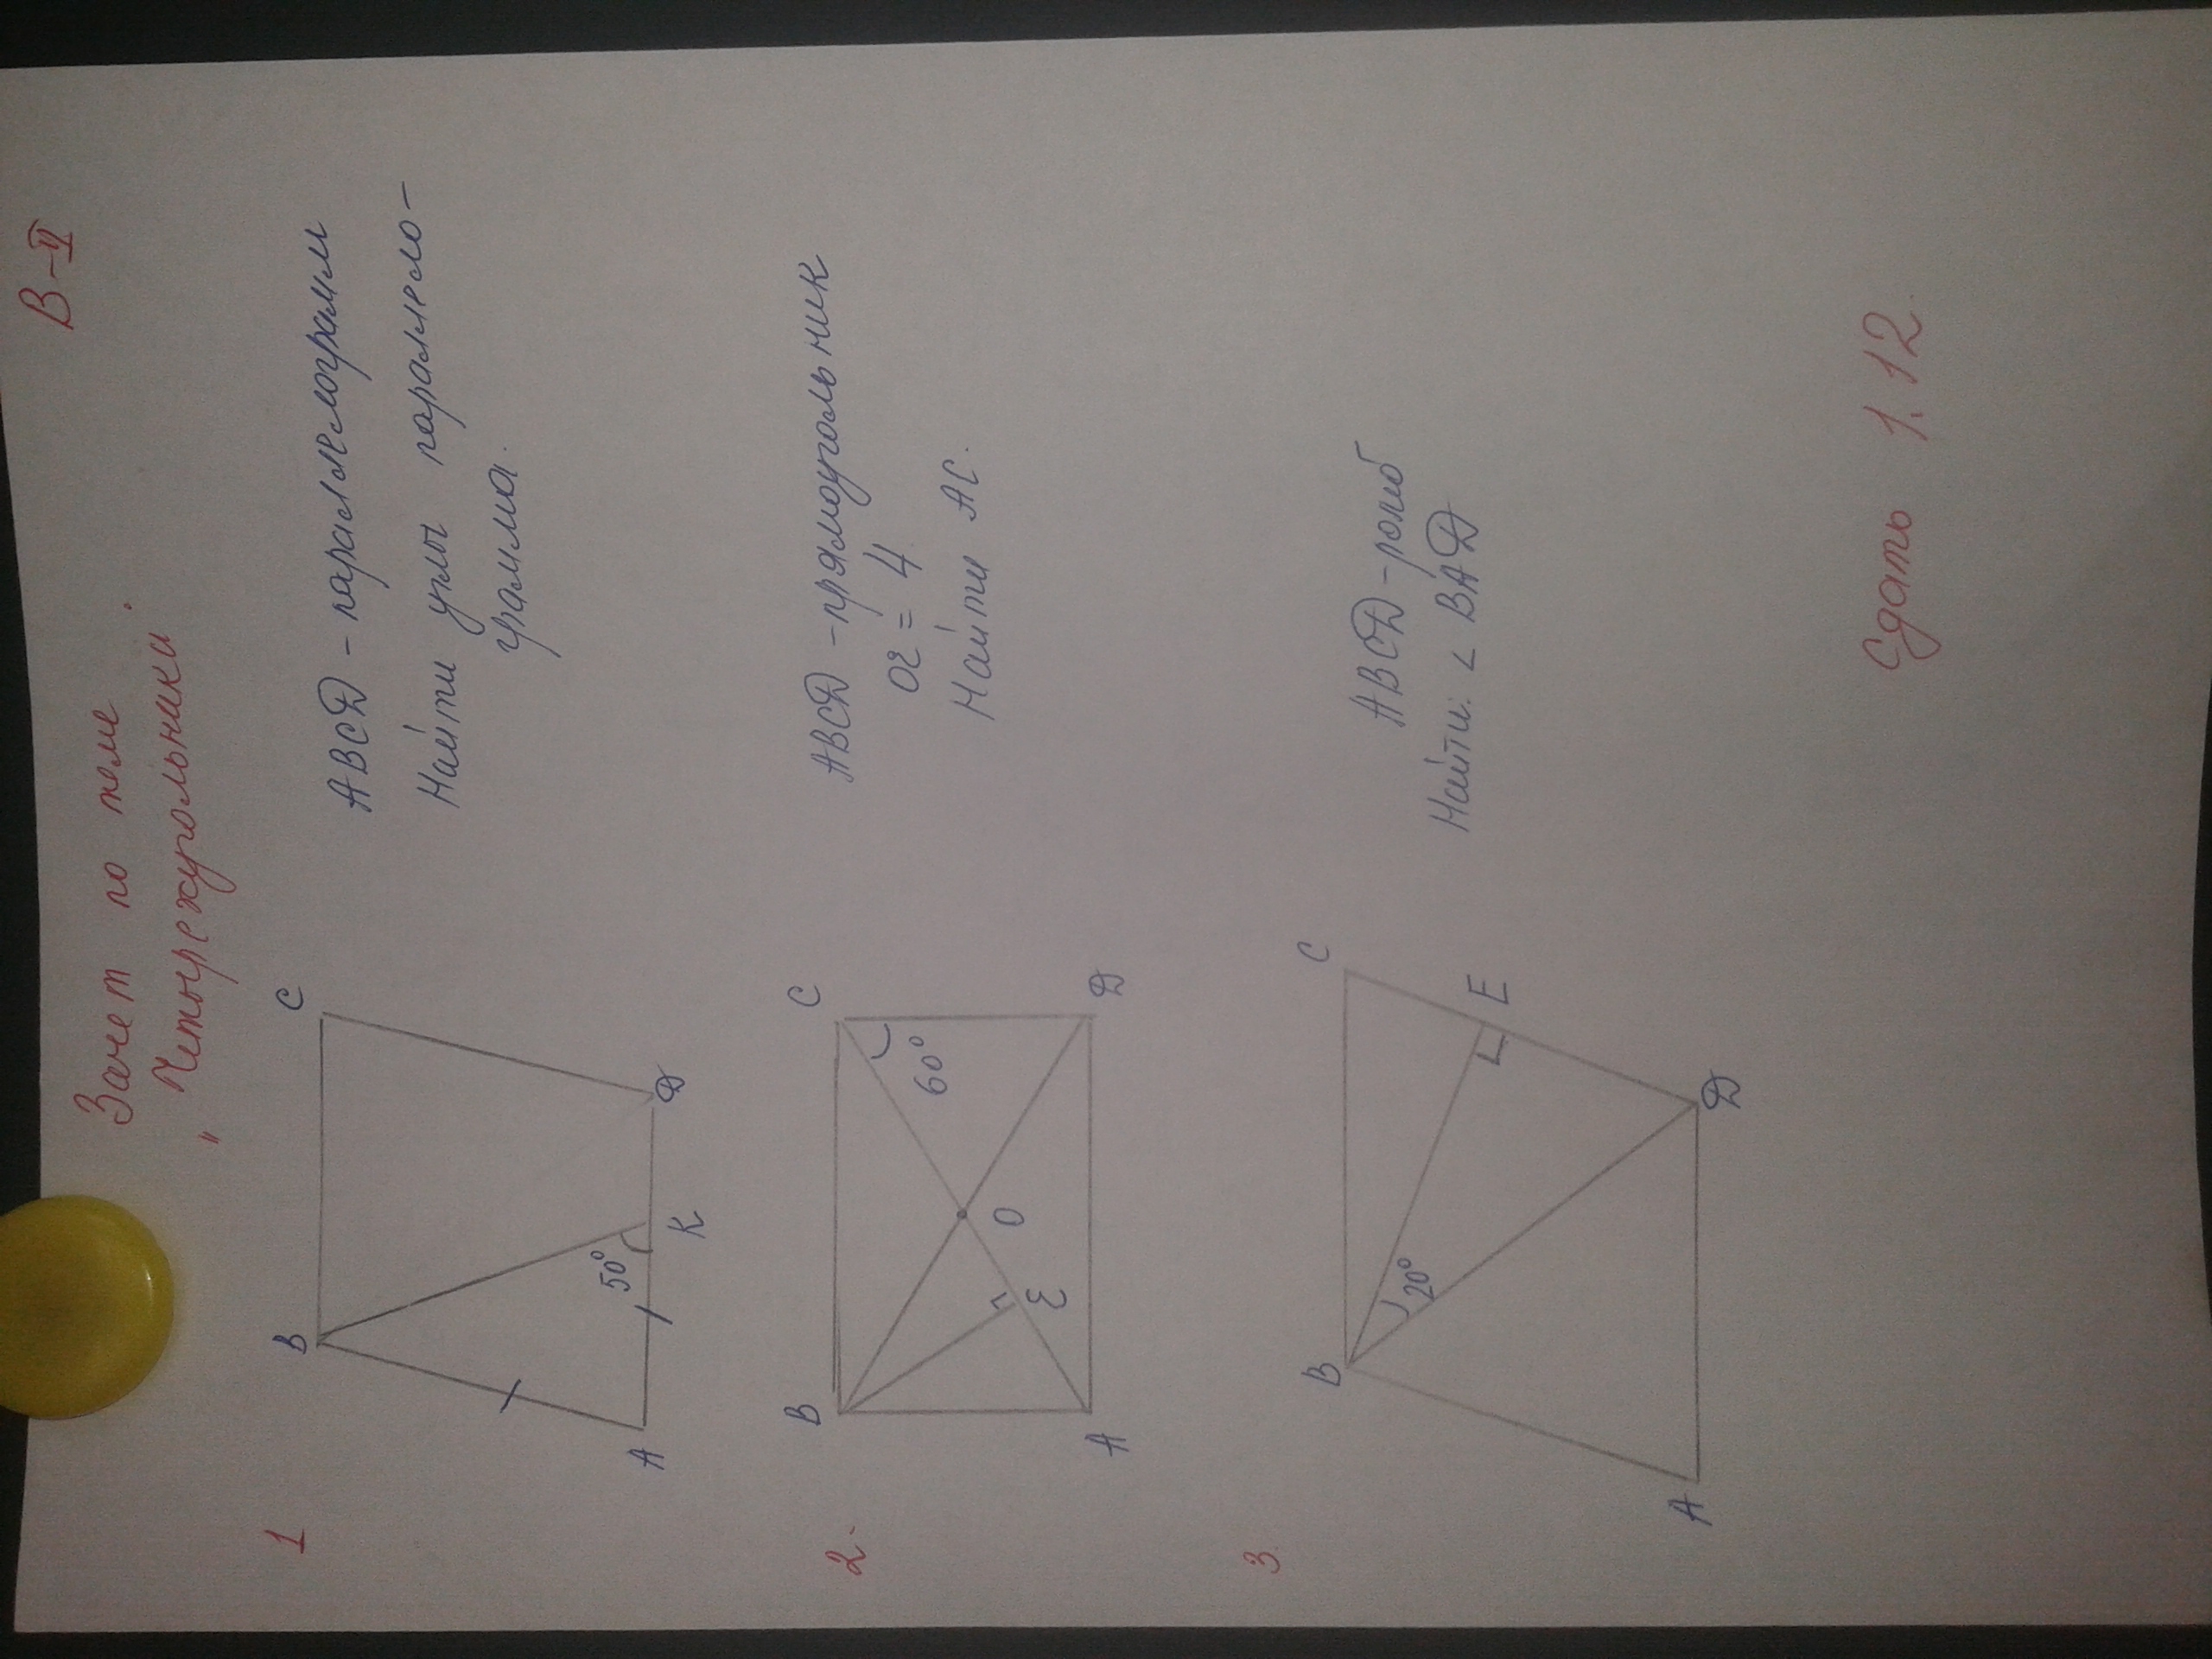 В-II
Зачет по теме
"Четырехугольники".
1
B
C
A
K
D
50°
ABCD - параллелограмм
Найти углы параллело-
грамма.
2.
B
C
60°
O
E
A
D
ABCD - прямоугольник
OE = 4
Найти AC.
3.
B
C
20°
E
A
D
ABCD - ромб
Найти: < BAD
Сдать 1.12.